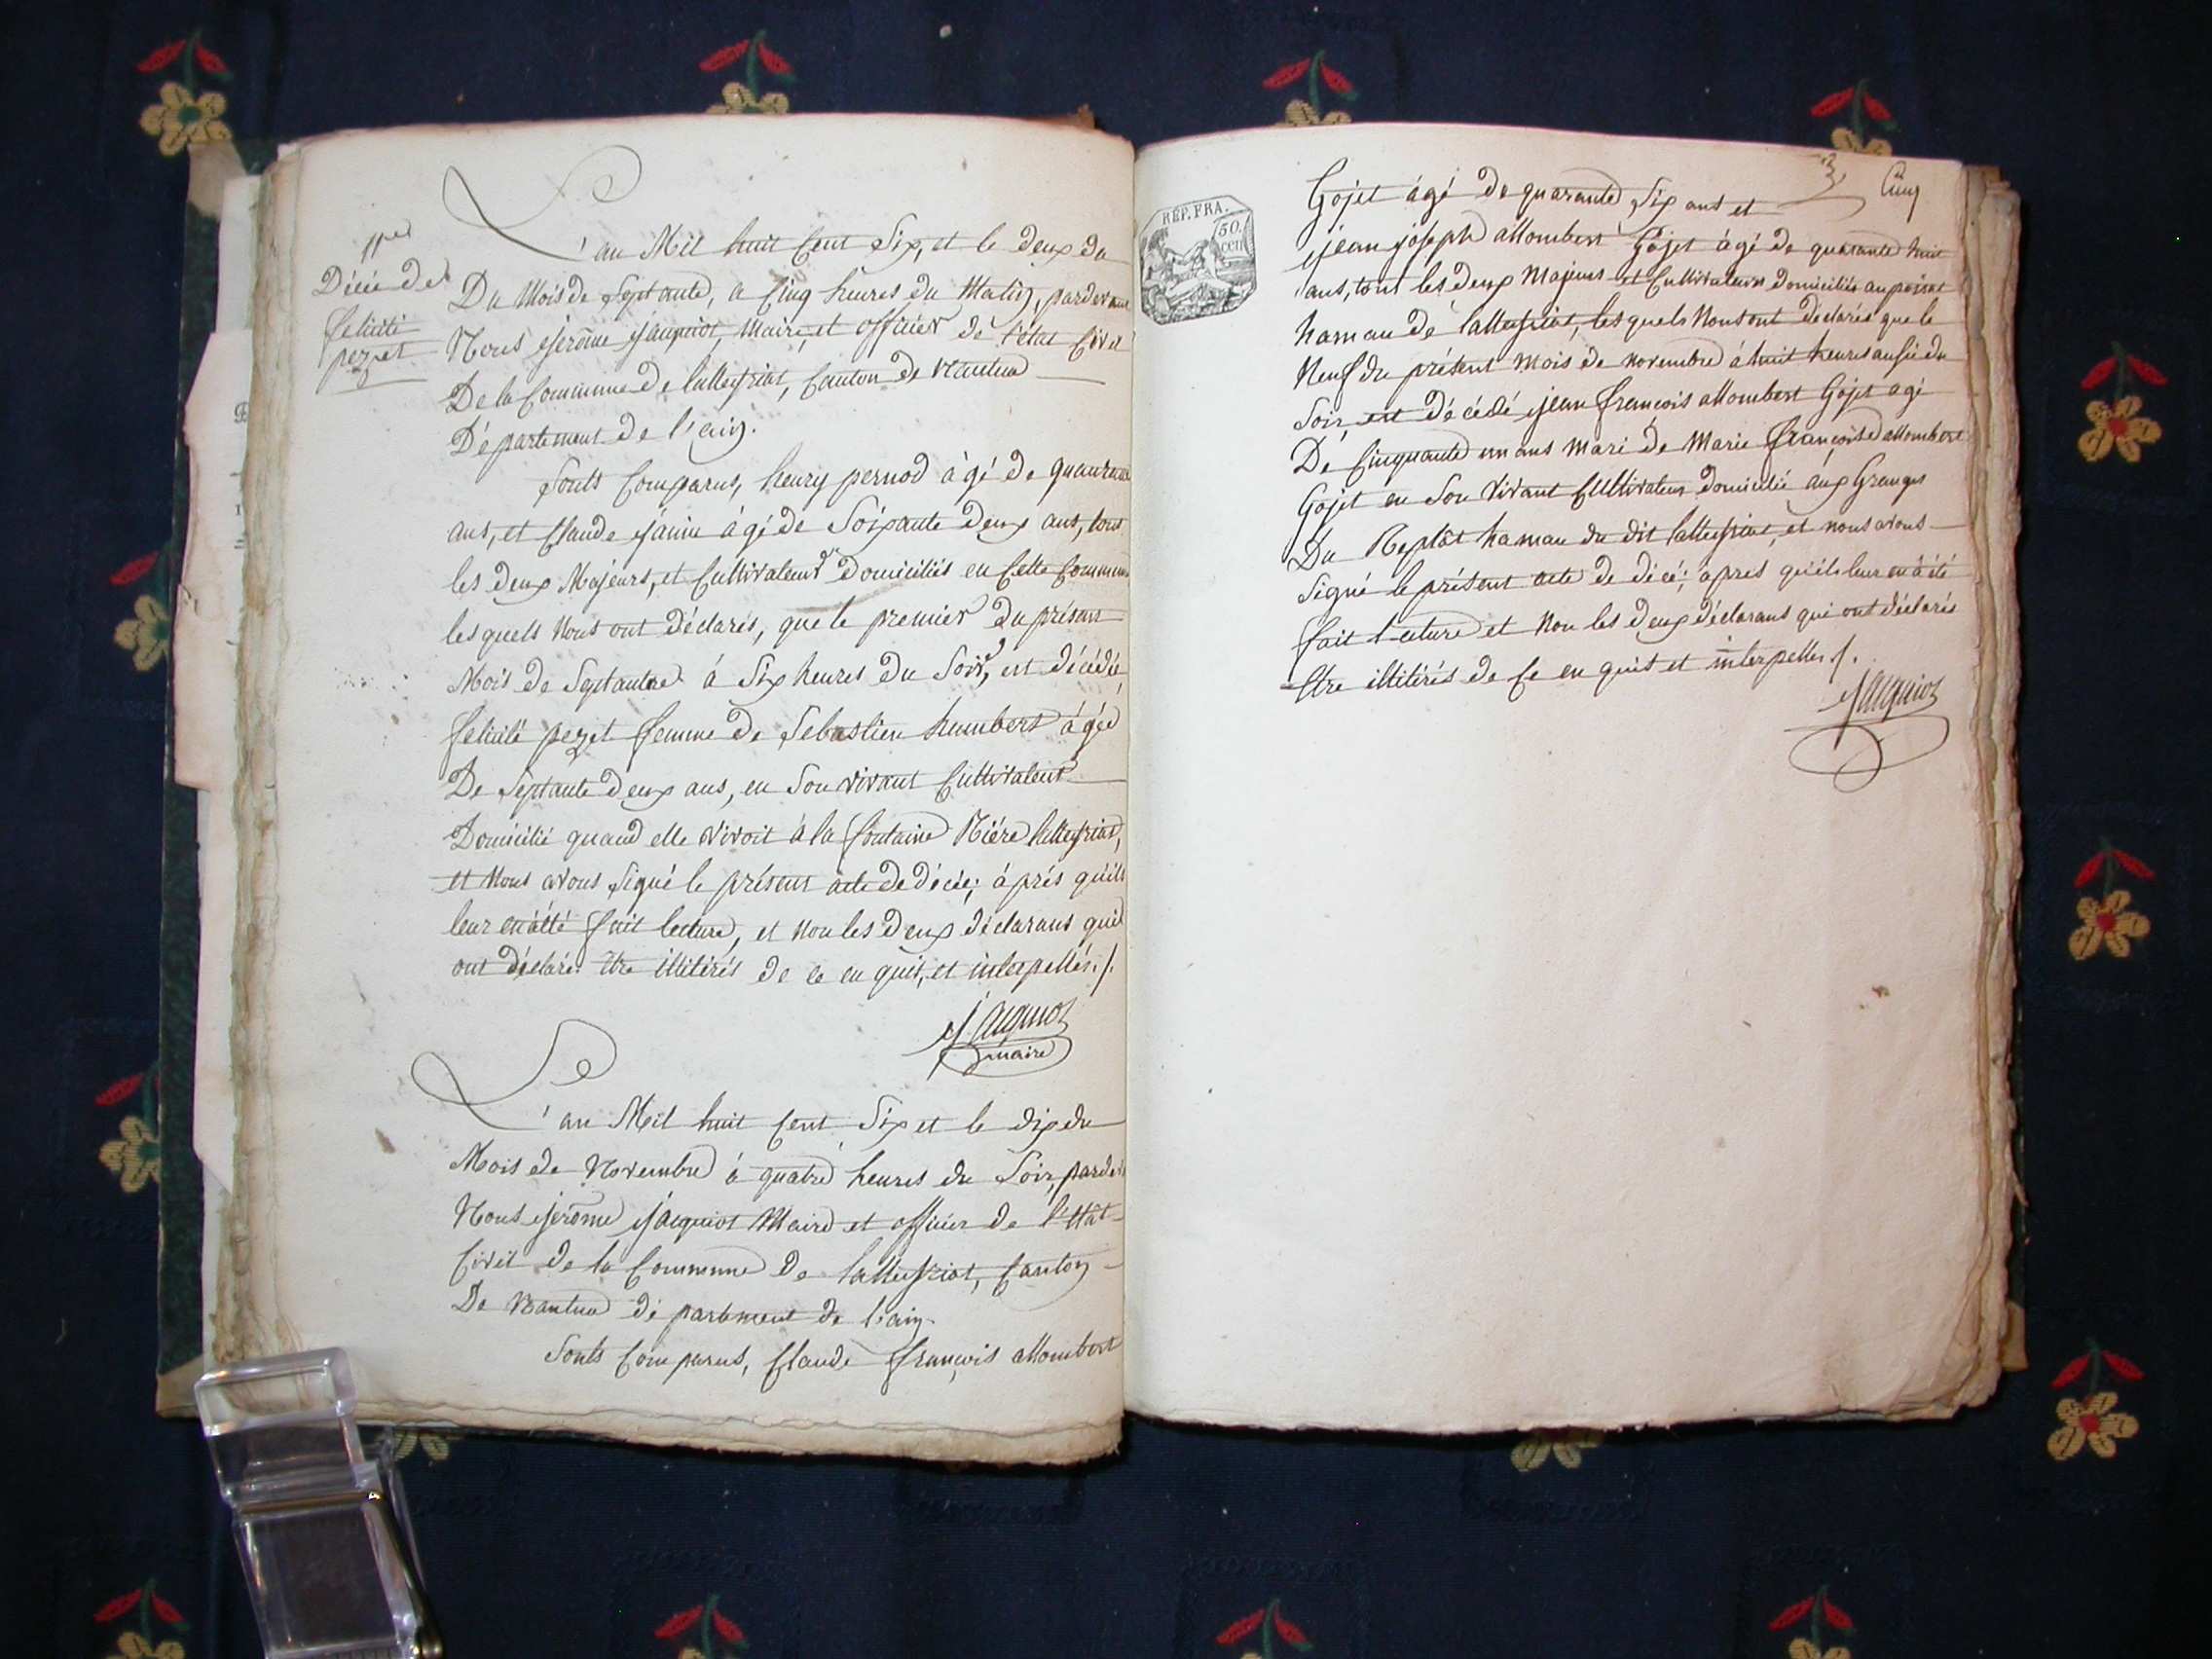 11e
Décée de
felicité
pezet
L'an Mil huit Cent Six, et le deux du
Du Mois de Septante, a Cinq heures du Matin, pardevant
Nous jerôme jacquiot, Maire, et officier de l'état Civil
De la Commune de lalleyriat, Canton de Nantua
Département de l'ain.
Sonts Comparus, henry pernod àgé de quarante
ans, et Claude janin àgé de Soixante Deux ans, tous
les deux Majeurs, et Cultivateurs Domiciliés en Cette Commune
lesquels Nous ont Déclarés, que le premier Du présent
Mois de Septantre à Six heures Du Soir, est décédée
felicité pezet femme De Sebastien humbert àgée
De Septante Deux ans, en Son vivant Cultivateur
Domicilié quand elle vivoit à la fontaine Nière lalleyriat,
et Nous avons Signé le présent acte de décée; àprés qu'ils
leur en àété fait lecture, et Non les Deux déclarans qui
ont déclaré être illitérés de ce en quit, et interpellés./.
Jacquiot
maire
L'an Mil huit Cent Six et le dix du
Mois de Novembre à quatre heures du Soir, pardev
Nous jerôme jacquiot Maire et officier de l'état
Civil de la Commune De lalleyriat, Canton
De Nantua département de l'ain.
Sonts Comparus, Claude françois allombert
REP. FRA.
50.
cen
3
Cinq
Gojet àgé de quarante Six ans et
jean joseph allombert Gojet àgé de quarante huit
ans, tout les deux Majeurs et Cultivateurs Domiciliés au poizat
hamau de lalleyriat, lesquels Nous ont déclarés que le
Neuf du présent Mois de Novembre à huit heures du
Soir, est décédé jean françois allombert Gojet agé
De Cinquante un ans Mari de Marie françoise allombert
Gojet en Son vivant Cultivateur Domicilié aux Granges
Du Replât hamau du dit lalleyriat, et nous avons
Signé le présent acte de décé; apres qu'ils leur en à été
fait lecture et Non les Deux déclarans qui ont déclarés
être illitérés de Ce en quit et interpellés ./.
Jacquiot